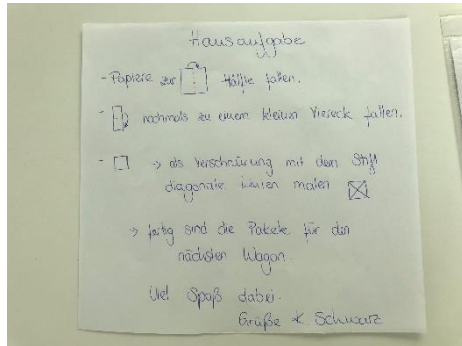 Hausaufgabe
- Papiere zur Hälfte falten.
- nochmals zu einem kleinen Viereck falten.
- → als Verschnürung mit dem Stift
diagonale Linien malen
→ fertig sind die Pakete für den
nächsten Wagon.
Viel Spaß dabei.
Grüße K. Schwarz